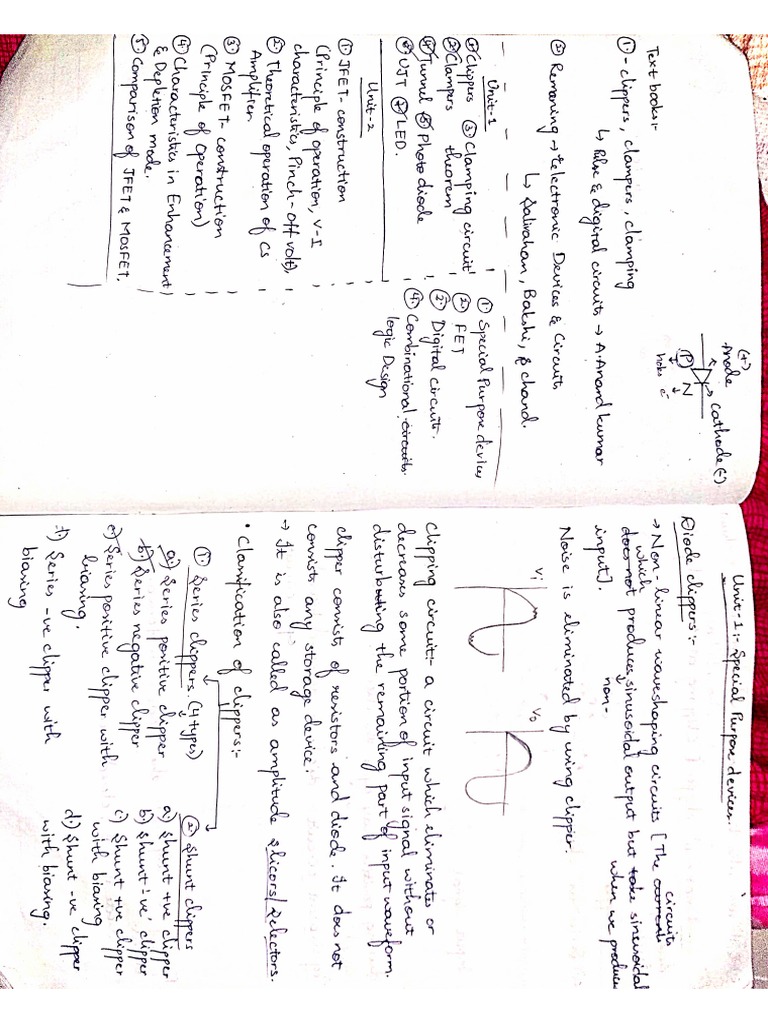 Text books:-
① - clippers, clampers, clamping
↳ Pulse & digital circuits → A. Anand kumar
② Remaning → Electronic Devices & Circuits
↳ Salivaham, Bakshi, S chand.
(+)
Anode
cathode (-)
P N
holes e⁻
Unit-1
① Clippers ③ Clamping circuit
② Clampers theorem
④ Tunnel ⑤ Photo diode
⑥ UJT ⑦ LED.
① Special Purpose devices
② FET
③ Digital circuits.
④ Combinational circuits.
logic Design
Unit-2
① JFET - construction
(Principle of operation, V-I
characteristics, Pinch-off volt),
② Theoretical operation of CS
Amplifier.
③ MOSFET - construction
(Principle of Operation)
④ Characteristics in Enhancement
& Depletion mode.
⑤ Comparison of JFET & MOSFET.
Unit-1:- Special Purpose devices.
Diode clippers:-
→ Non-linear waveshaping circuits [The circuits
which does not produces non-sinusoidal output but take sinusoidal
input]. when we produce
Noise is eliminated by using clipper.
Vi
Vo
Clipping circuit:- a circuit which eliminates or
decreases some portion of input signal without
disturbating the remainting part of input waveform.
clipper consists of resistors and diode. It does not
consists any storage device.
→ It is also called as amplitude slicors/selectors.
• Classification of clippers:-
① Series clippers (4 types)
a) Series positive clipper
b) Series negative clipper
e) Series positive clipper with
biasing.
f) Series -ve clipper with
biasing
② Shunt clippers
a) shunt +ve clipper
b) shunt '-ve' clipper
c) Shunt +ve clipper
with biasing
d) Shunt -ve clipper
with biasing.